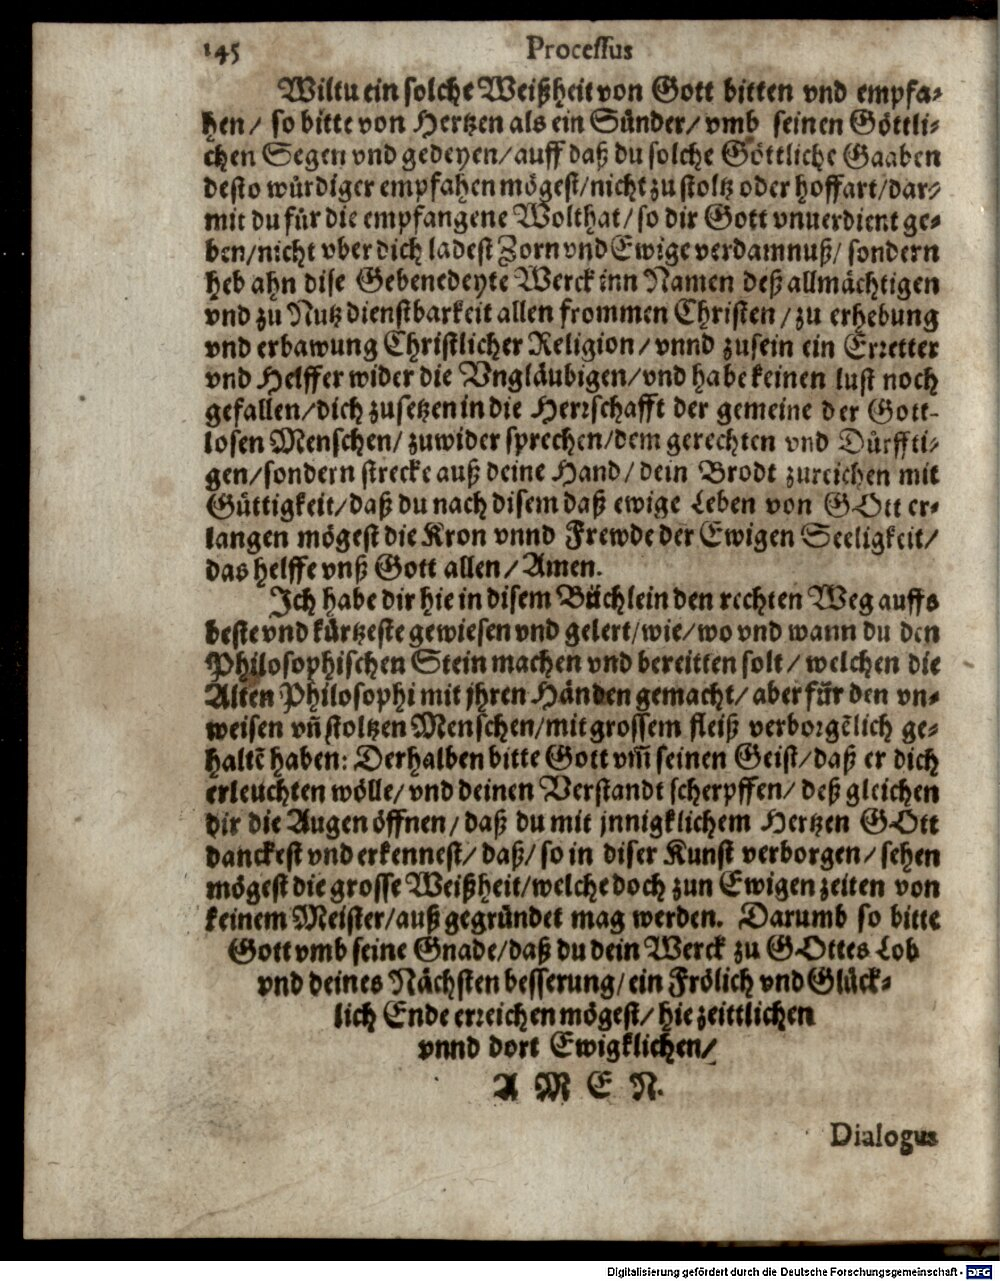 145 Processus
Wiltu ein solche Weißheit von Gott bitten vnd empfa-
hen/ so bitte von Hertzen als ein Sünder/ vmb seinen Göttli-
chen Segen vnd gedeyen/ auff daß du solche Göttliche Gaaben
desto würdiger empfahen mögest/ nicht zu stoltz oder hoffart/ dar-
mit du für die empfangene Wolthat/ so dir Gott vnuerdient ge-
ben/ nicht vber dich ladest Zorn vnd Ewige verdamnuß/ sondern
heb ahn dise Gebenedeyte Werck inn Namen deß allmächtigen
vnd zu Nutz dienstbarkeit allen frommen Christen/ zu erhebung
vnd erbawung Christlicher Religion/ vnnd zusein ein Erretter
vnd Helffer wider die Vngläubigen/ vnd habe keinen lust noch
gefallen/ dich zusetzen in die Herrschafft der gemeine der Gott-
losen Menschen/ zuwider sprechen/ dem gerechten vnd Dürffti-
gen/ sondern strecke auß deine Hand/ dein Brodt zureichen mit
Güttigkeit/ daß du nach disem daß ewige Leben von GOtt er-
langen mögest die Kron vnnd Frewde der Ewigen Seeligkeit/
das helffe vnß Gott allen/ Amen.
Ich habe dir hie in disem Büchlein den rechten Weg auffs
beste vnd kürtzeste gewiesen vnd gelert/ wie/ wo vnd wann du den
Philosophischen Stein machen vnd bereitten solt/ welchen die
Alten Philosophi mit jhren Händen gemacht/ aber für den vn-
weisen vñ stoltzen Menschen/ mit grossem fleiß verborgẽlich ge-
haltẽ haben: Derhalben bitte Gott vm̃ seinen Geist/ daß er dich
erleuchten wölle/ vnd deinen Verstandt scherpffen/ deß gleichen
dir die Augen öffnen/ daß du mit jnnigklichem Hertzen GOtt
danckest vnd erkennest/ daß/ so in diser Kunst verborgen/ sehen
mögest die grosse Weißheit/ welche doch zun Ewigen zeiten von
keinem Meister/ auß gegründet mag werden. Darumb so bitte
Gott vmb seine Gnade/ daß du dein Werck zu GOttes Lob
vnd deines Nächsten besserung/ ein Frölich vnd Glück-
lich Ende erreichen mögest/ hie zeittlichen
vnnd dort Ewigklichen/
A M E N.
Dialogus
Digitalisierung gefördert durch die Deutsche Forschungsgemeinschaft - DFG